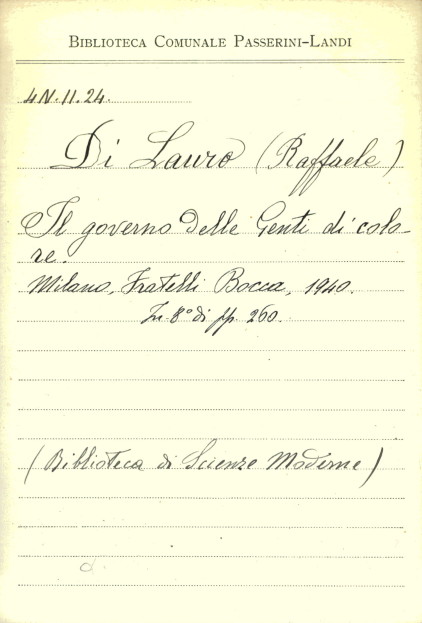 BIBLIOTECA COMUNALE PASSERINI-LANDI
4N.II.24.
Di Lauro (Raffaele)
Il governo delle Genti di colo-
re.
Milano, Fratelli Bocca, 1940.
In 8° di pp. 260.
(Biblioteca di Scienze Moderne)